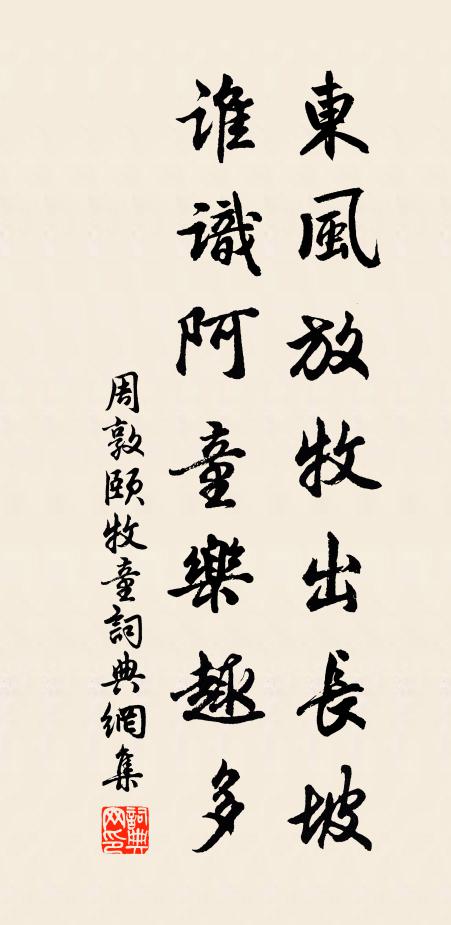 東風放牧出長坡
誰識阿童樂趣多
周敦頤牧童詞典網集
詞典网印